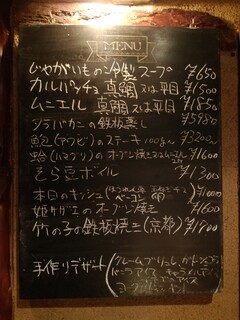 MENU
じゃがいもの冷製スープ ¥650
カルパッチョ 真鯛又は平目 ¥1500
ムニエル 真鯛又は平目 ¥1850
タラバカニの鉄板蒸し ¥5980
鮑(アワビ)のステーキ 100g ¥3200
蛤(ハマグリ)のオーブン焼き又はムニエル ¥1600
そら豆ボイル ¥1300
本日のキッシュ(ほうれん草 玉ねぎ ベーコン) ¥1000
姫サザエのオーブン焼き ¥600
竹の子の鉄板焼き(京都)
手作りデザート(クレームブリュレ、ガトーショコラ
バニラアイス キャラメルアイス
アイス